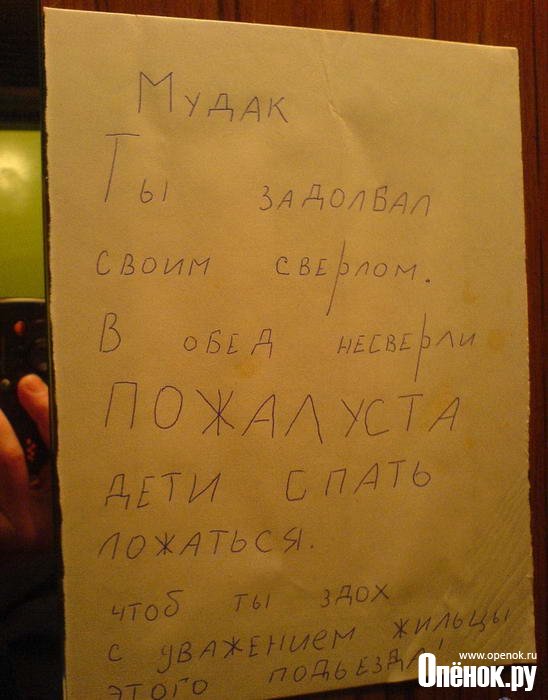 Мудак
Ты задолбал
своим сверлом.
В обед несверли
ПОЖАЛУСТА
дети спать
ложаться.
чтоб ты здох
с уважением жильцы
этого подьезда!
www.openok.ru
Опёнок.ру